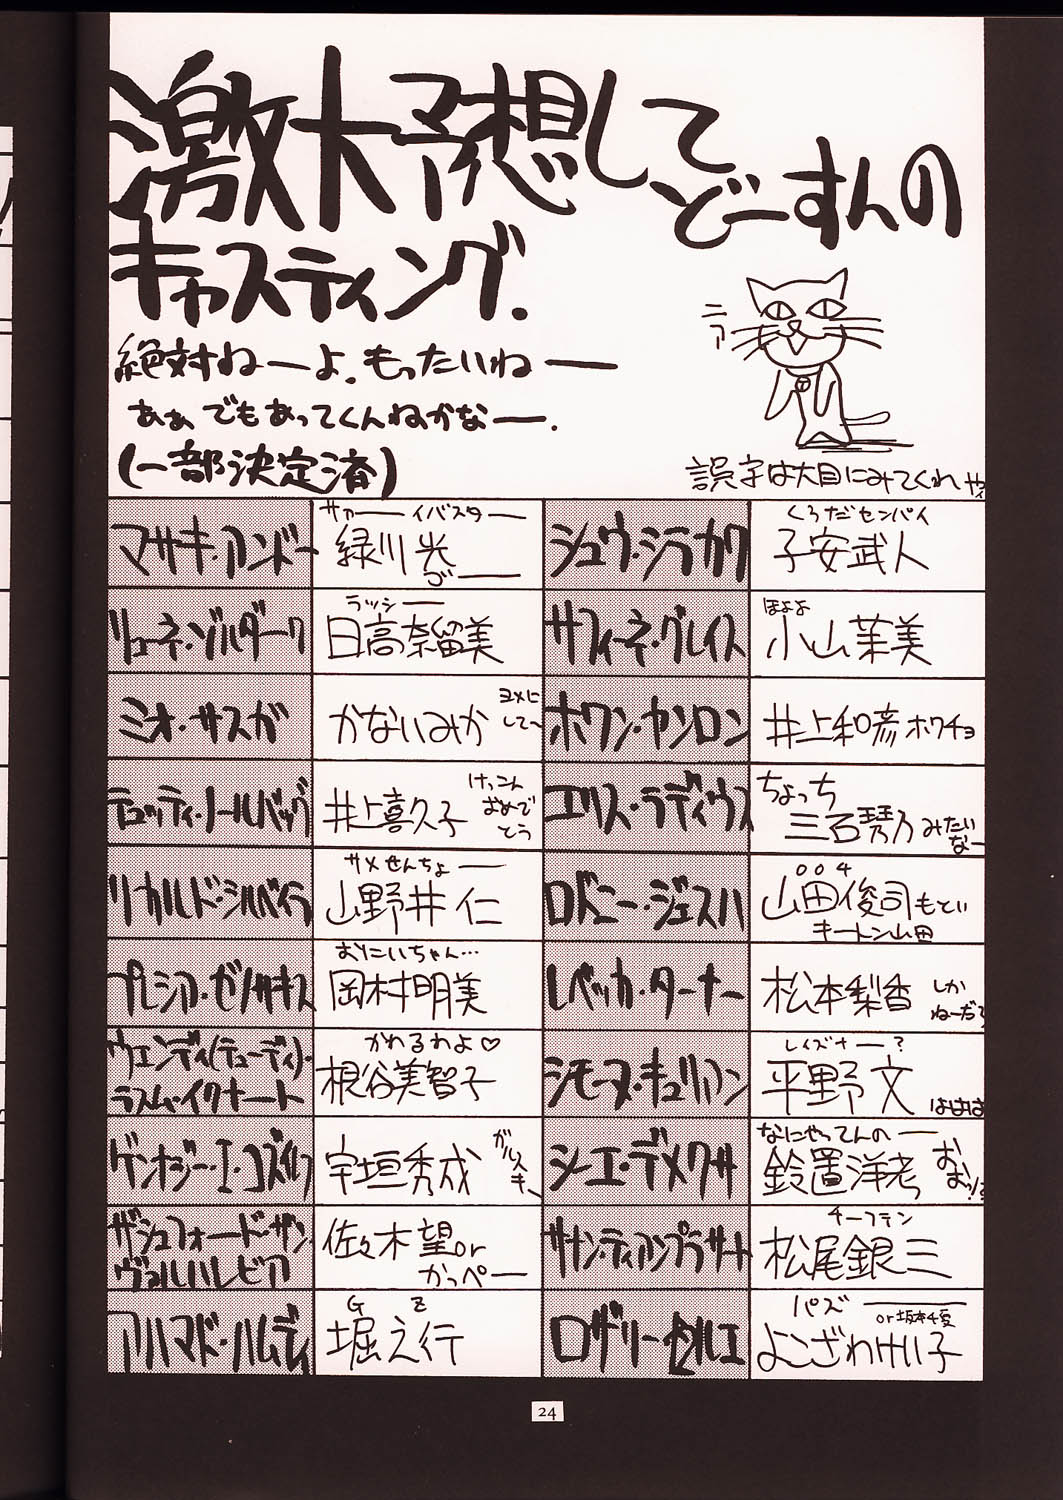 激大予想してどーすんの
キャスティング.
絶対ねーよ.もったいねー
あぁ でもあってくんねかなー.
(一部決定済)
ニァ
誤字は大目にみてくれ ヤ
マサキ・アンドー
サァーーイバスター
緑川光
ゴー
シュウ・シラカワ
くろだセンパイ
子安武人
リューネ・ゾルダーク
ラッシー
日高奈留美
サフィーネ・グレイス
ほよよ
小山茉美
ミオ・サスガ
かないみか
ヨメに
して〜
ホワン・ヤンロン
井上和彦 ホワチョ
テュッティ・ノールバック
井上喜久子
けっこん
おめで
とう
エリス・ラディウス
ちょっち
三石琴乃 みたい
なー
リカルド・シルベイラ
サメせんちょー
山野井仁
ロドニー・ジェスハ
004
山田俊司 もとい
キートン山田
プレシア・ゼノサキス
おにいちゃん…
岡村明美
レベッカ・ターナー
松本梨香
しか
ねーだろ
ウエンディ(テューディ)・
ラスム・イクナート
かわるわよ♡
根谷美智子
シモーヌ・キュリアン
レイズナー?
平野文
ははは
ゲンナジー・I・コズイレフ
宇垣秀成
シーエ・デメクサ
なにやってんのー
鈴置洋孝
おおッ!?
ザシュフォード・ザン・
ヴァルハレビア
佐々木望or
かっぺー
サナン・ティアンプラサート
チーフテン
松尾銀三
アハマド・ハムディ
GZ
堀之行
ロザリー・セルエ
パズ
or 坂本千夏
よこざわけい子
24